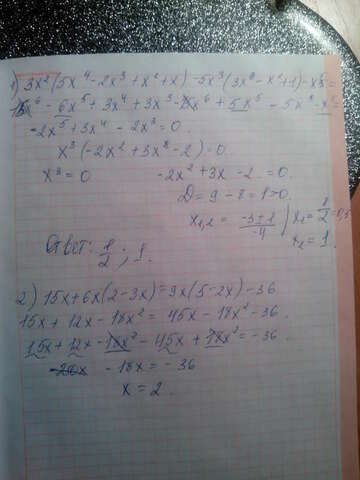 1) 3x²(5x⁴-2x³+x²+x)-5x³(3x³-x²+1)-x⁵=
15x⁶-6x⁵+3x⁴+3x³-15x⁶+5x⁵-5x³-x⁵=
-2x⁵+3x⁴-2x³=0.
x³(-2x²+3x-2)=0.
x³=0 -2x²+3x-2=0.
D=9-8=1>0.
x₁,₂=(-3±1)/-4; x₁=1/2=0,5
x₂=1.
Ответ: 1/2; 1.
2) 15x+6x(2-3x)=9x(5-2x)-36
15x+12x-18x²=45x-18x²-36.
15x+12x-18x²-45x+18x²=-36.
-18x=-36
x=2.